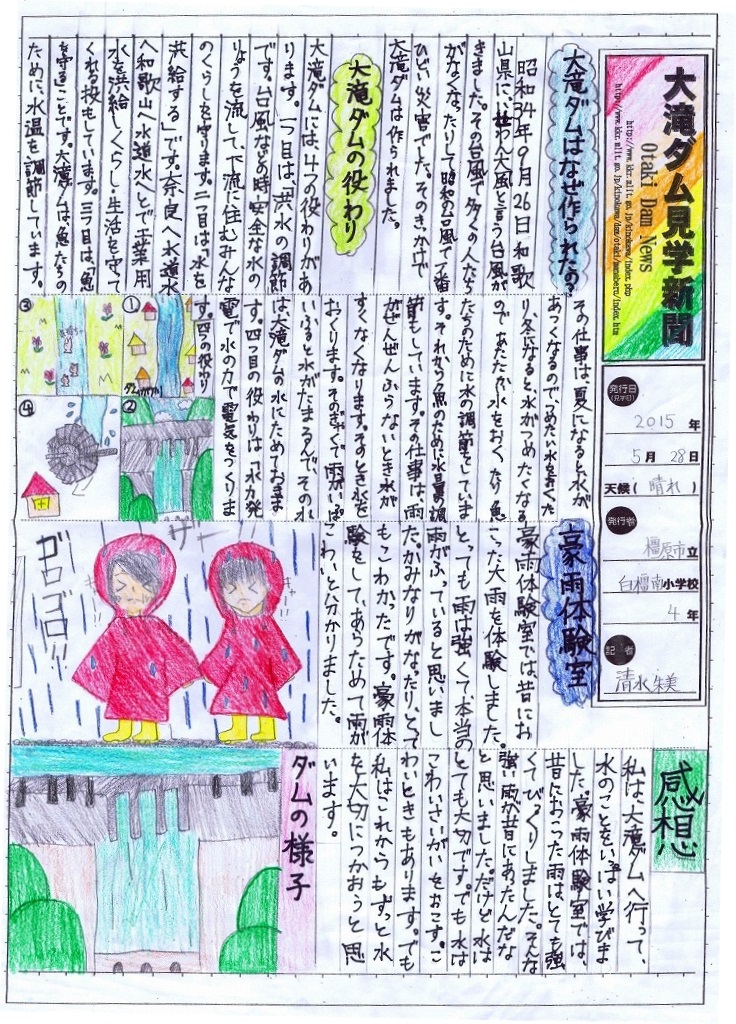 大滝ダム見学新聞
Otaki Dam News
http://www.kkr.mlit.go.jp/kinokawa/index.php
発行日
(見学日)
2015年
5月28日
天候(晴れ)
発行者
橿原市立
白橿南小学校
4年
記者
清水朱美
大滝ダムはなぜ作られたの?
昭和34年9月26日和歌
山県にい勢わん大風と言う台風が
きました。その台風で多くの人たち
がなくなったりして昭和の台風で一番
ひどい災害でした。そのきっかけで
大滝ダムは作られました。
大滝ダムの役わり
大滝ダムには、4つの役わりがあ
ります。一つ目は、「洪水の調節」
です。台風などの時安全な水の
りょうを流して、下流に住むみんな
のくらしを守ります。二つ目は「水を
共給する」です。奈良へ水道水
へ和歌山へ水道水へとで工業用
水を洪給しくらし・生活を守って
くれる役もしています。三つ目は、「魚
を守る」ことです。大滝ダムは魚たちの
ために、水温を調節しています。
その仕事は夏になると、水が
あつくなるので、つめたい水をおくた
り冬になると水がつめたくなる
ので、あたたかい水をおくったり魚
たちのために水の調節をしていま
す。それから魚のために水量の調
節もしています。その仕事は、雨
がぜんぜんふらないとき水が
すくなくなります。そのとき水を
おくります。そのぎゃくで雨がいっぱ
いふると水がたまるんで、その水
は大滝ダムの水にためておきま
す。四つ目の役わりは「水力発
電で水の力で電気をつくりま
す。四の役わり
①
②
③
④
豪雨体験室
豪雨体験室では、昔にお
こった大雨を体験しました。
とっても雨は強くて、本当の
雨がふっていると思いまし
た。かみなりがなったり、とって
もこわかったです。豪雨体
験をして、あらためて雨が
こわいと分かりました。
ザー
ゴロゴロ!!
感想
私は、大滝ダムへ行って、
水のことをいっぱい学びま
した。豪雨体験室では、
昔におこった雨は、とても強
くてびっくりしました。そんな
強い雨が昔にあたんだな
と思いました。だけど水は
とても大切です。でも水は
こわいさいがいをおこす。こ
わいときもあります。でも
私はこれからもずっと水
を大切につかおうと思
います。
ダムの様子